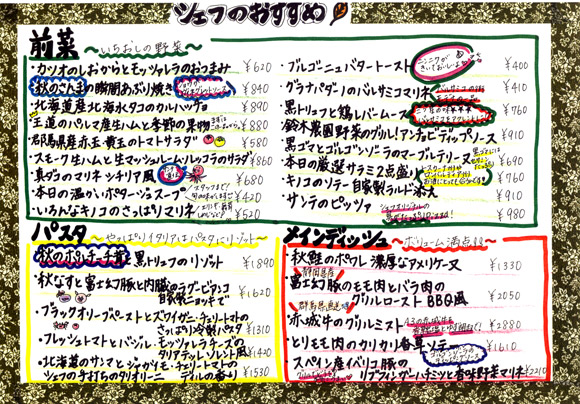 シェフのおすすめ
前菜 ～いちおしの野菜～
・カツオのしおからとモッツァレラのおつまみ ¥620
・秋のさんまの瞬間あぶり焼き ¥840
・北海道産北海水タコのカルパッチョ ¥890
・王道のパルマ産生ハムと季節の果物 ¥880
・群馬県産赤玉・黄玉のトマトサラダ ¥580
・スモーク生ハムと生マッシュルーム・ルッコラのサラダ ¥860
・真ダコのマリネ シチリア風 ¥680
・本日の温かいポタージュスープ ¥420
・いろんなキノコのさっぱりマリネ ¥520
・ブルゴーニュバタートースト ニンニクが ¥400
・グラナパダーノのバルサミコマリネ ¥410
・黒トリュフと鶏レバームース ¥760
・鈴木農園野菜のグリル!アンチョビディップソース ¥910
・黒ゴマとゴルゴンゾーラのマーブルテリーヌ ¥690
・本日の厳選サラミ2点盛り ¥760
・キノコのソテー 自家製ラルド添え ¥910
・サンテのピッツァ ¥980
パスタ ～やっぱりイタリアはパスタにリゾット～
・秋のポルチーチ茸と黒トリュフのリゾット ¥1890
・秋なすと富士幻豚と肉醤のラグービアンコ
自家製ニョッキで ¥1620
・ブラックオリーブペーストとズワイガニ・チェリートマトの
さっぱり冷製パスタ ¥1310
・フレッシュトマトとバジル・モッツァレラチーズの
タリアテッレ ソレント風 ¥1420
・北海道のサンマとジャガイモ・チェリートマトの
シェフの手打ちのタリオリーニ ディルの香り ¥1530
メインディッシュ ～ボリューム満点!!～
・秋鮭のポワレ 濃厚なアメリケーヌ ¥1330
静岡県産
・富士幻豚のモモ肉とバラ肉の
グリルロースト BBQ風 ¥2050
群馬県直送
・赤城牛のグリルミスト ¥2880
・とりモモ肉のカリカリ香草ソテー ¥1610
・スペイン産イベリコ豚の
リブフィンガー ハチミツと香味野菜マリネ ¥2210